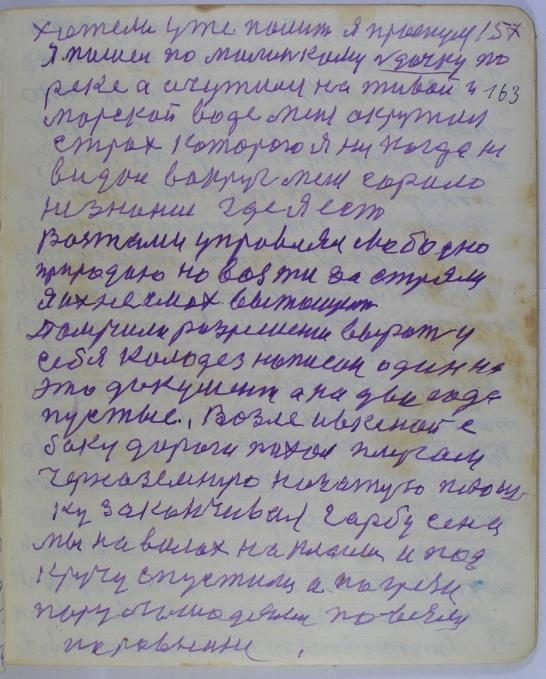 хотели уже полит я проснул 157
Я пошел по малинкому удочку по
реке а очутился на живой и 163
морской воде мене окружил
страх которого я ни когда не
видал вокруг мене горело
незнание где я ест
Возжами управлял свободно
природаю но возжи
я их не смах вытащит
Получили разрешения вырыт у
себя колодез написал один на
это документ а на два года
пустые. Возле
боку дороги пахал плугам
черназемную начатую площ-
ку заканчивал гарбу сена
мы на волах наклали и под
кручу спустили а
пару лошадями повезли
поровнение.